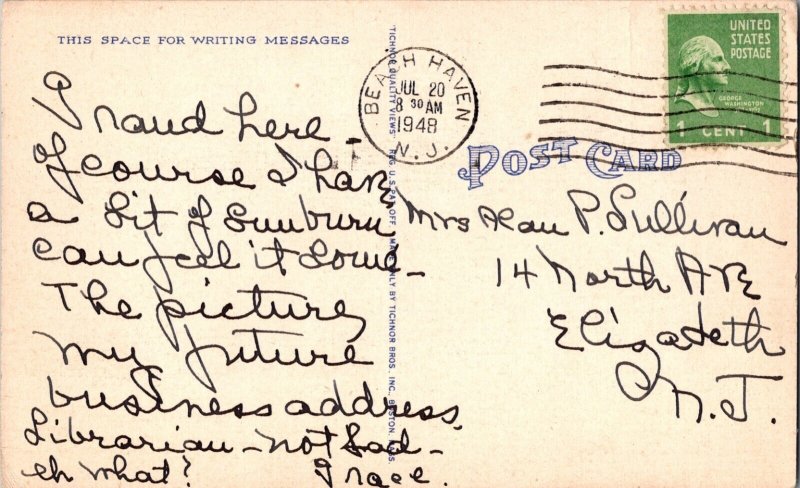 THIS SPACE FOR WRITING MESSAGES
Proud here -
of course I have
a bit of sunburn
can feel it some -
The picture,
my future
business address,
Librarian - not bad -
eh what? Grace.
"TICHNOR QUALITY VIEWS" REG. U.S. PAT. OFF. MADE ONLY BY TICHNOR BROS. INC., BOSTON, MASS.
BEACH HAVEN
JUL 20
8 30 AM
1948
N. J.
UNITED
STATES
POSTAGE
GEORGE
WASHINGTON
1 CENT 1
POST CARD
Mrs Alan P. Sullivan
14 North Ave
Elizabeth
N. J.